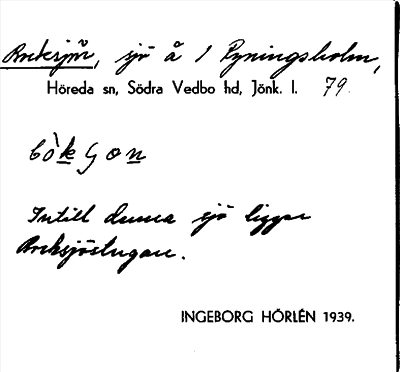 Boksjön, sjö å 1 Ryningsholm,
Höreda sn, Södra Vedbo hd, Jönk. l. 79.
bòkʃon
Intill denna sjö ligger
Boksjöstugan.
INGEBORG HÖRLÉN 1939.